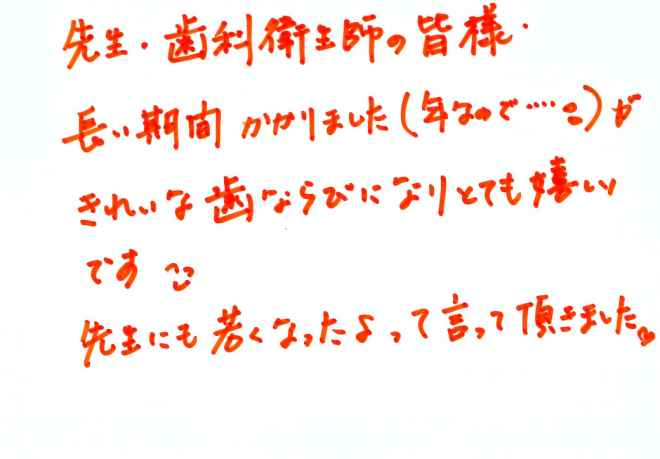 先生・歯科衛生師の皆様・
長い期間かかりました(年なので…。)が
きれいな歯ならびになりとても嬉しい
です
先生にも若くなったよって言って頂きました